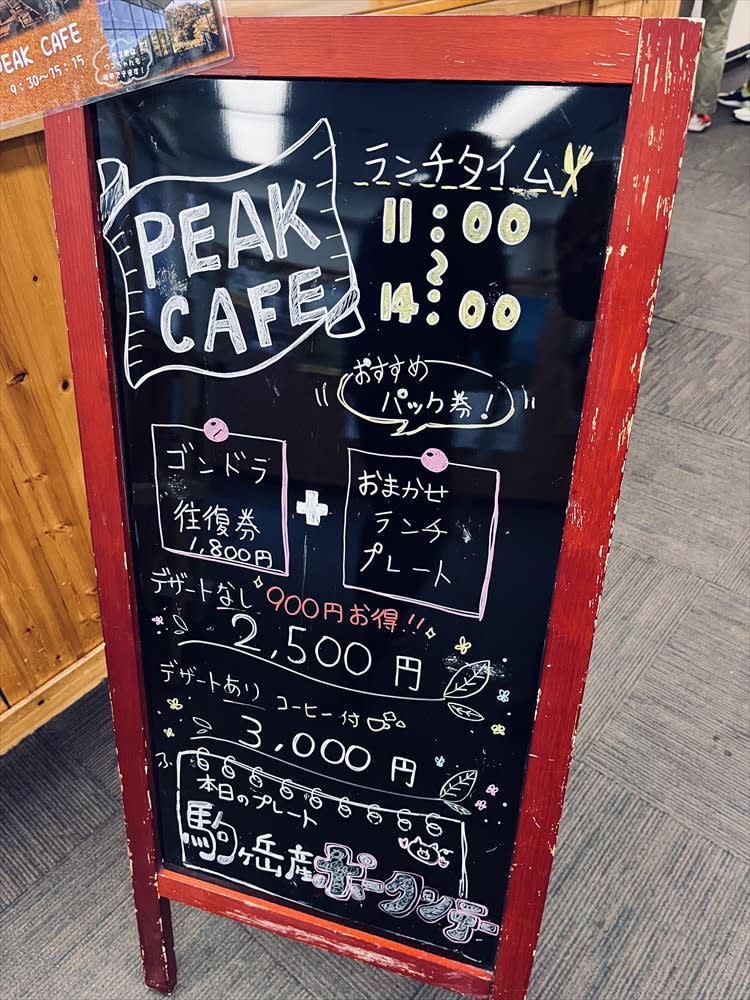 PEAK CAFE
9:30~15:15
PEAK
CAFE
ランチタイム
11:00
~
14:00
おすすめ
パック券!
ゴンドラ
往復券
1,800円
+
おまかせ
ランチ
プレート
デザートなし
900円お得!!
2,500円
デザートあり
コーヒー付
3,000円
本日のプレート
駒ヶ岳産ポークソテー